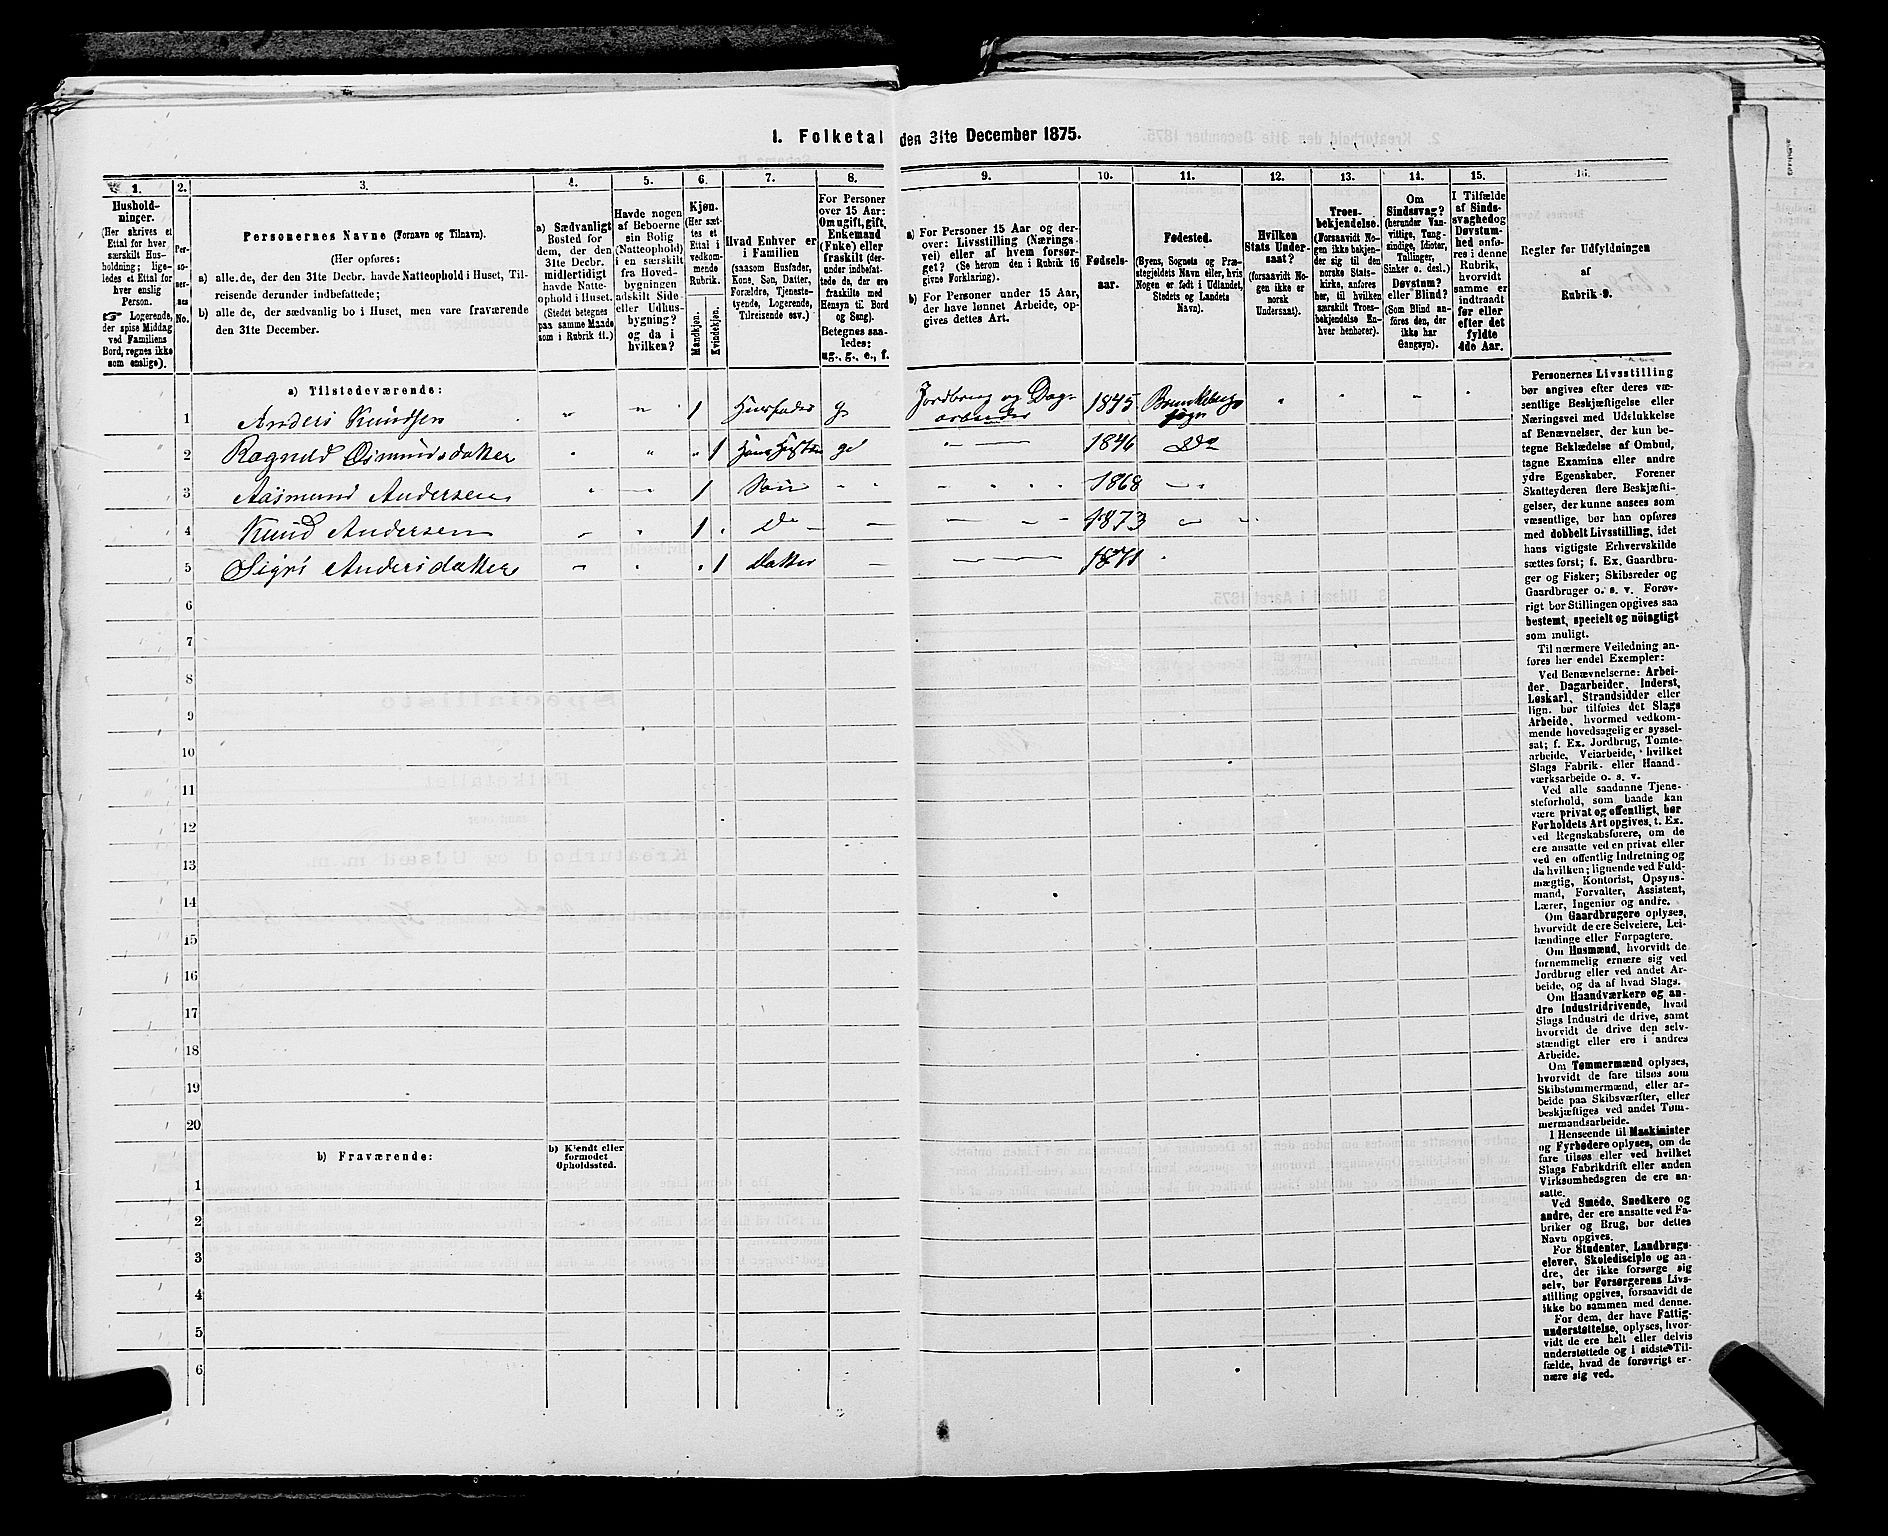 1. Folketal den 31te December 1875.
1.
2.
3.
4.
5.
6.
7.
8.
9.
10.
11.
12.
13.
14.
15.
16.
Hushold-
ninger.
(Her skrives et
Ettal for hver
særskilt Hus-
holdning; lige-
ledes et Ettal for
hver enslig
Person.
☞ Logerende,
der spise Middag
ved Familiens
Bord, regnes ikke
som enslige).
Per-
so-
ner-
nes
No.
Personernes Navne (Fornavn og Tilnavn).
(Her opføres:
a) alle de, der den 31te Decbr. havde Natteophold i Huset, Til-
reisende derunder indbefattede;
b) alle de, der sædvanlig bo i Huset, men vare fraværende
den 31te December.
a) Sædvanligt
Bosted for
dem, der den
31te Decbr.
midlertidigt
havde Natte-
ophold i Huset.
(Stedet betegnes
paa samme Maade
som i Rubrik 11.)
Havde nogen
af Beboerne
sin Bolig
(Natteophold)
i en særskilt
fra Hoved-
bygningen
adskilt Side-
eller Udhus-
bygning?
og da i
hvilken?
Kjøn.
(Her sæt-
tes et
Ettal i
vedkom-
mende
Rubrik.
Mandkjøn.
Kvindekjøn.
Hvad Enhver er
i Familien
(saasom Husfader,
Kone, Søn, Datter,
Forældre, Tjeneste-
tyende, Logerende,
Tilreisende osv.)
For Personer
over 15 Aar:
Om ugift, gift,
Enkemand
(Enke) eller
fraskilt (der-
under indbefat-
tede de, der ere
fraskilte med
Hensyn til Bord
og Seng).
Betegnes saa-
ledes:
ug., g., e., f.
a) For Personer 15 Aar og der-
over: Livsstilling (Nærings-
vei) eller af hvem forsør-
get? (Se herom den i Rubrik 16
givne Forklaring).
b) For Personer under 15 Aar,
der have lønnet Arbeide, op-
gives dettes Art.
Fødsels-
aar.
Fødested.
(Byens, Sognets og Præ-
stegjeldets Navn eller, hvis
Nogen er født i Udlandet,
Stedets og Landets
Navn).
Hvilken
Stats Under-
saat?
(forsaavidt No-
gen ikke er
norsk
Undersaat).
Troes-
bekjendelse.
(Forsaavidt No-
gen ikke bekjen-
der sig til den
norske Stats-
kirke, anføres
her, til hvilken
særskilt Troes-
bekjendelse En-
hver henhører).
Om
Sindssvag?
(herunder Van-
vittige, Tung-
sindige, Idioter,
Tullinger,
Sinker o. desl.)
Døvstum?
eller Blind?
(Som Blind an-
føres den, der
ikke har
Gangsyn).
I Tilfælde
af Sinds-
svaghed og
Døvstum-
hed anfø-
res i denne
Rubrik,
hvorvidt
samme er
indtraadt
før eller
efter det
fyldte
4de Aar.
Regler for Udfyldningen
af
Rubrik 9.
a) Tilstedeværende:
1 Anders Knudsen " " 1 Huusfader g Jordbrug og Dag-
arbeider 1845 Brunkebergs
sogn
2 Ragnild Osmundsdatter " " " 1 g 1846 Do
3 Aasmund Andersen " 1 Søn " 1868 "
4 Knud Andersen " " 1 Do 1873 " "
5 Sigri Andersdatter " " " 1 Datter 1871
6
7
8
9
10
11
12
13
14
15
16
17
18
19
20
b) Fraværende:
b) Kjendt eller
formodet
Opholdssted.
1
2
3
4
5
6
Personernes Livsstilling
bør angives efter deres væ-
sentlige Beskjæftigelse eller
Næringsvei med Udelukkelse
af Benævnelser, der kun be-
tegne Beklædelse af Ombud,
tagne Examina eller andre
ydre Egenskaber. Forener
Skatteyderen flere Beskjæfti-
gelser, der kunne ansees som
væsentlige, bør han opføres
med dobbelt Livsstilling, idet
hans vigtigste Erhvervskilde
sættes først; f. Ex. Gaardbru-
ger og Fisker; Skibsreder og
Gaardbruger o. s. v. Forøv-
rigt bør Stillingen opgives saa
bestemt, specielt og nöiagtigt
som muligt.
Til nærmere Veiledning an-
føres her endel Exempler:
Ved Benævnelserne: Arbei-
der, Dagarbeider, Inderst,
Løskarl, Strandsidder eller
lign. bør tilføies det Slags
Arbeide, hvormed vedkom-
mende hovedsagelig er syssel-
sat; f. Ex. Jordbrug, Tomte-
arbeide, Veiarbeide, hvilket
Slags Fabrik- eller Haand-
værksarbeide o. s. v.
Ved alle saadanne Tjene-
steforhold, som baade kan
være privat og offentligt, bør
Forholdets Art opgives, t. Ex.
ved Regnskabsførere, om de
ere ansatte ved en privat eller
ved en offentlig Indretning og
da hvilken; lignende ved Fuld-
mægtig, Kontorist, Opsyns-
mand, Forvalter, Assistent,
Lærer, Ingeniør og andre.
Om Gaardbrugere oplyses,
hvorvidt de ere Selveiere, Lei-
lændinge eller Forpagtere.
Om Husmænd, hvorvidt de
fornemmelig ernære sig ved
Jordbrug eller ved andet Ar-
beide, og da af hvad Slags.
Om Haandværkere og an-
dre Industridrivende, hvad
Slags Industri de drive, samt
hvorvidt de drive den selv-
stændigt eller ere i andres
Arbeide.
Om Tømmermænd oplyses,
hvorvidt de fare tilsøs som
Skibstømmermænd, eller ar-
beide paa Skibsværfter, eller
beskjæftiges ved andet Tøm-
mermandsarbeide.
I Henseende til Maskinister
og Fyrbødere oplyses, om de
fare tilsøs eller ved hvilket
Slags Fabrikdrift eller anden
Virksomhedsgren de ere an-
satte.
Ved Smede, Snedkere og
andre, der ere ansatte ved Fa-
briker og Brug, bør dettes
Navn opgives.
For Studenter, Landbrugs-
elever, Skoledisciple og an-
dre, der ikke forsørge sig
selv, bør Forsørgerens Livs-
stilling opgives, forsaavidt de
ikke bo sammen med denne.
For dem, der have Fattig-
understøttelse, oplyses, hvor-
vidt de ere helt eller delvis
understøttede og i sidste Til-
fælde, hvad de forøvrigt er-
nære sig ved.